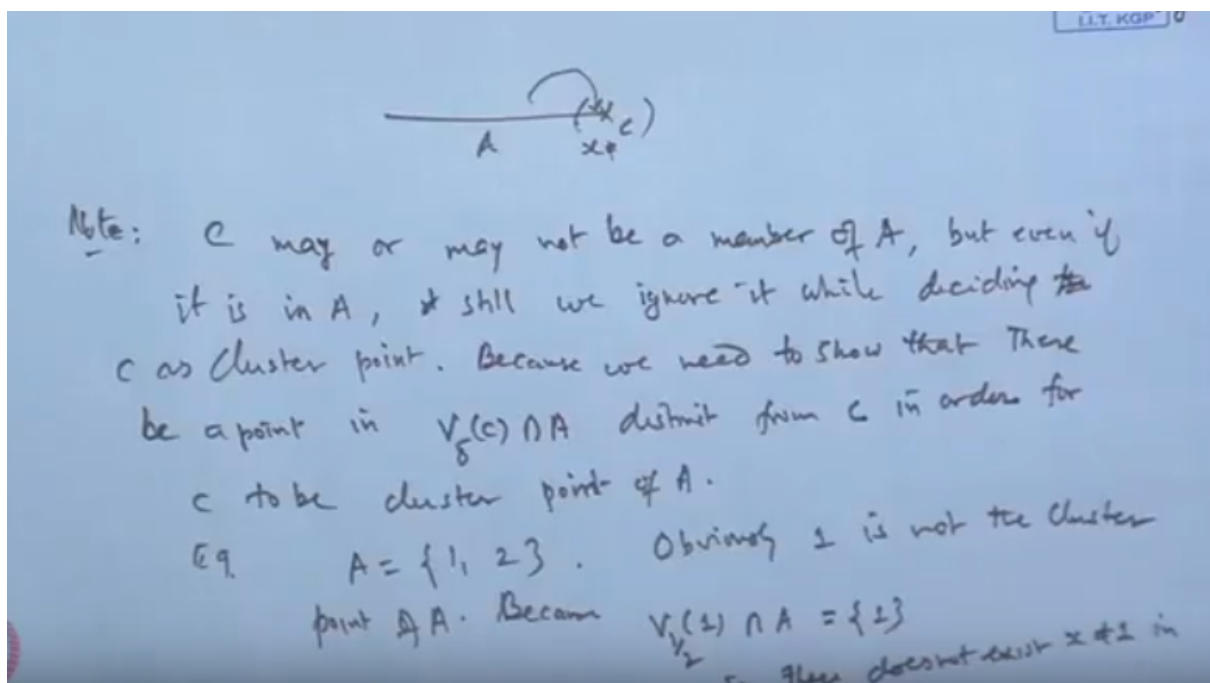 I.I.T. KGP
A
x≠
c)
Note: C may or may not be a member of A, but even if
it is in A, still we ignore it while deciding
c as Cluster point. Because we need to show that There
be a point in V_δ(c) ∩ A distinit from c in order for
c to be cluster point of A.
Eg. A = {1, 2}. Obviously 1 is not the Cluster
point of A. Because V_{1/2}(1) ∩ A = {1}
there doesnot exist x ≠ 1 in